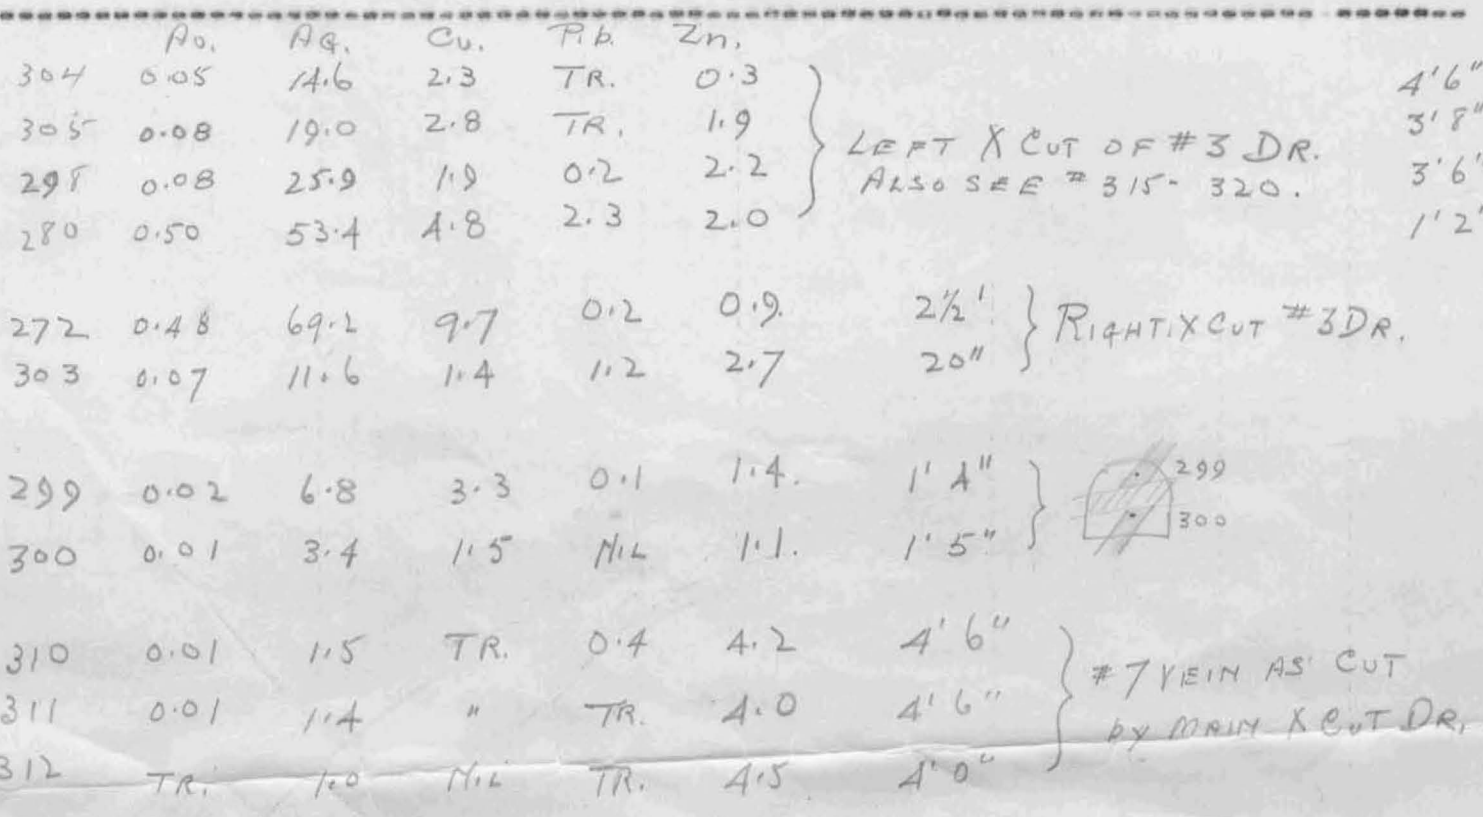 Au. Ag. Cu. Pb. Zn.
304 0.05 14.6 2.3 TR. 0.3 4'6"
305 0.08 19.0 2.8 TR. 1.9 3'8"
LEFT X CUT OF #3 DR.
298 0.08 25.9 1.9 0.2 2.2 3'6"
ALSO SEE #315-320.
280 0.50 53.4 4.8 2.3 2.0 1'2"
272 0.48 69.2 9.7 0.2 0.9. 2½'
RIGHT X CUT #3 DR.
303 0.07 11.6 1.4 1.2 2.7 20"
299 0.02 6.8 3.3 0.1 1.4. 1'4" 299
300 0.01 3.4 1.5 NIL 1.1. 1'5" 300
310 0.01 1.5 TR. 0.4 4.2 4'6"
#7 VEIN AS CUT
311 0.01 1.4 " TR. 4.0 4'6"
by MAIN X CUT DR.
312 TR. 1.0 NIL TR. 4.5 4'0"